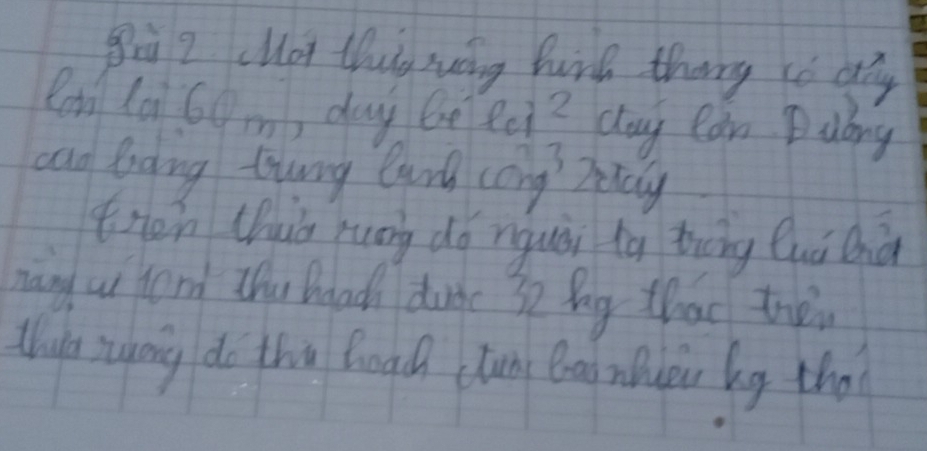 Bài 2 Một thửa ruộng hình thang có đáy
lớn là 60m, đáy bé là 2 đáy lớn Đường
cao bằng trung bình cộng 2 đáy
trên thửa ruộng đó người ta trồng
10m thu hoạch được 32 kg thóc trên
thửa ruộng đó thu hoạch được bao nhiêu kg thó